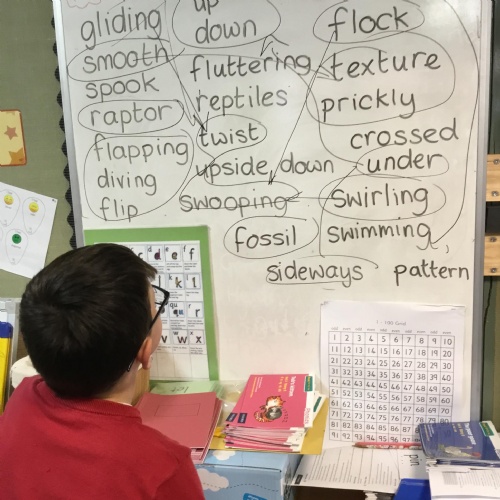 gliding
smooth
spook
raptor
flapping
diving
flip
up
down
fluttering
reptiles
twist
upside down
swooping
fossil
sideways
flock
texture
prickly
crossed
under
swirling
swimming
pattern
d e f
k l
qu r
v w x
1 - 100 Grid
1 2 3 4 5 6 7 8 9 10
11 12 13 14 15 16 17 18 19 20
21 22 23 24 25 26 27 28 29 30
31 32 33 34 35 36 37 38 39 40
41 42 43 44 45 46 47 48 49 50
51 52 53 54 55 56 57 58 59 60
61 62 63 64 65 66 67 68 69 70
71 72 73 74 75 76 77 78 79 80
81 82 83 84 85 86 87 88 89 90
91 92 93 94 95 96 97 98